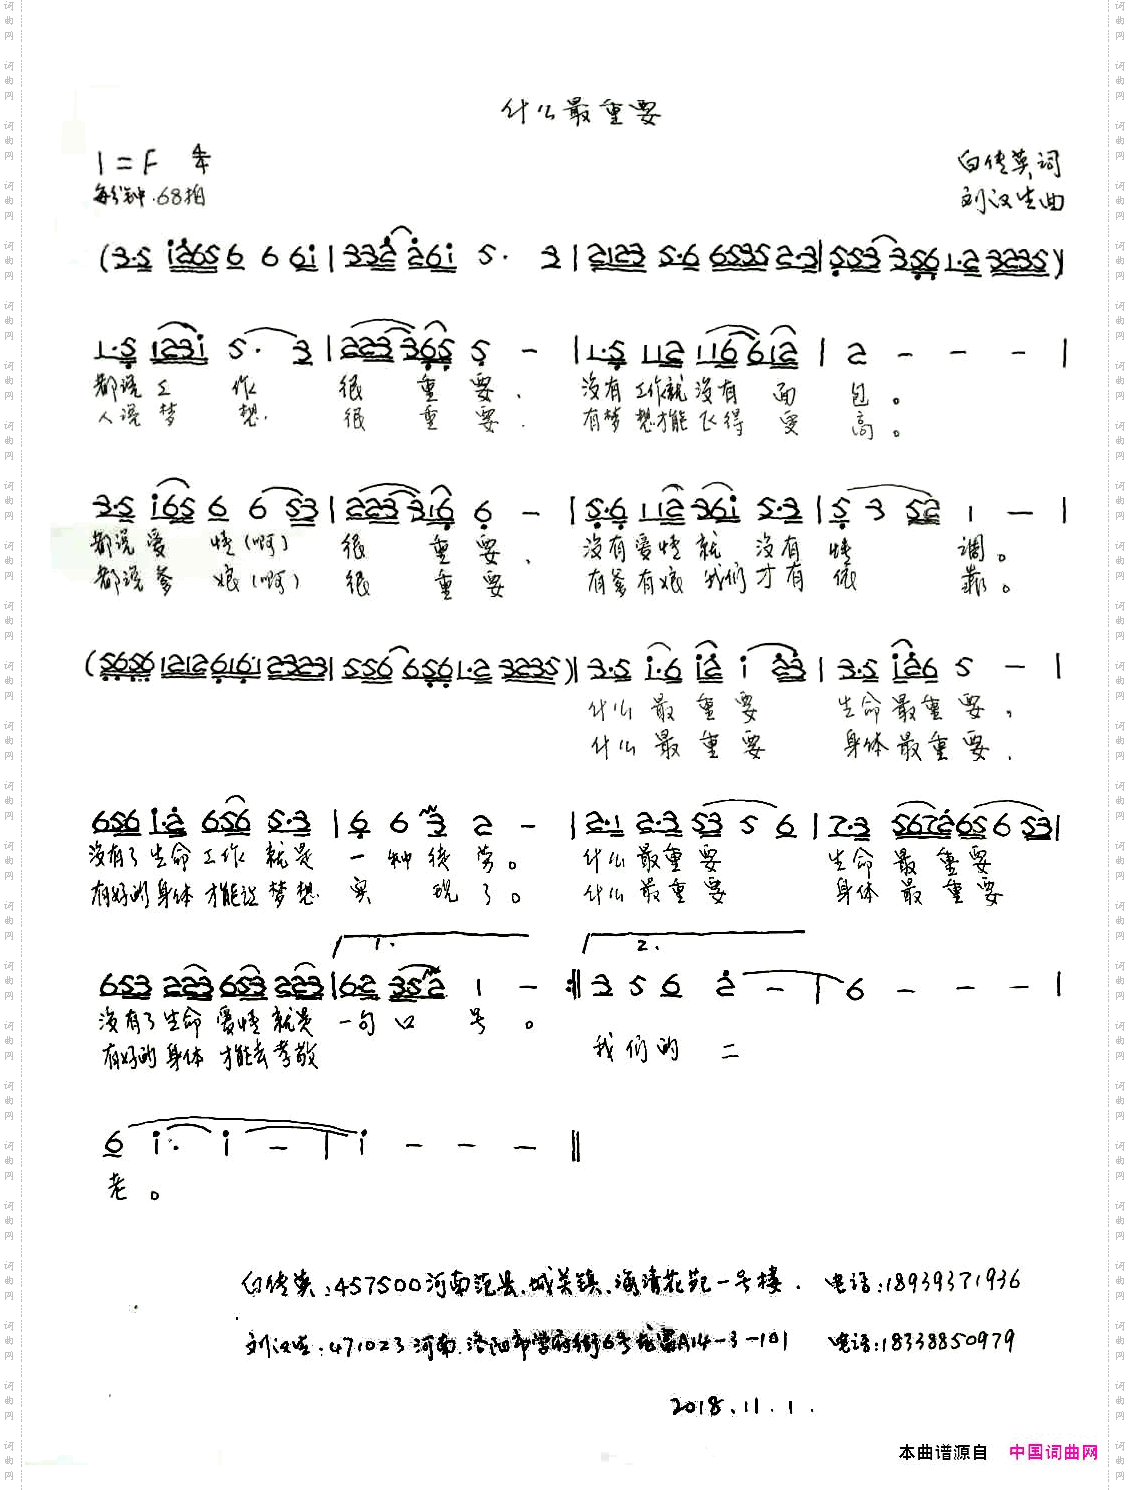 什么最重要
1=F 4/4
白传英词
每分钟68拍
刘汉生曲
(3·5 i265 6 6 6i | 332 26i 5· 3 | 2123 5·6 6535 2·3 | 553 356 1·2 3235)
1·5 123i 5· 3 | 223 365 5 - | 1·5 112 116 612 | 2 - - - |
都说工作很重要,没有工作就没有面包。
人说梦想很重要.有梦想才能飞得更高。
3·5 i65 6 6 53 | 223 316 6 - | 5·6 112 36i 5·3 | 5 3 52 1 - |
都说爱情(啊)很重要,没有爱情就没有情调。
都说爹娘(啊)很重要 有爹有娘我们才有依靠。
(5656 1212 6161 2323 | 556 656 1·2 3235) | 3·5 i·6 i2 i 23 | 3·5 i26 5 - |
什么最重要 生命最重要,
什么最重要 身体最重要.
656 i·2 656 5·3 | 6 6 3 2 - | 2·1 2·3 53 5 6 | 7·3 567265 6 53 |
没有了生命工作就是一种徒劳。什么最重要 生命最重要
有好的身体才能让梦想实现了。什么最重要 身体最重要
1.
2.
653 223 653 223 | 6·2 352 1 - :‖ 3 5 6 2 - | 6 - - - |
没有了生命爱情就是一句口号。
有好的身体才能去孝敬
我们的二
6 i· i - | i - - - ‖
老。
白传英:457500河南范县.城关镇.海清花苑一号楼. 电话:18939371936
刘汉生:471023河南.洛阳市学府街6号龙富A14-3-101 电话:18338850979
2018.11.1.
本曲谱源自 中国词曲网